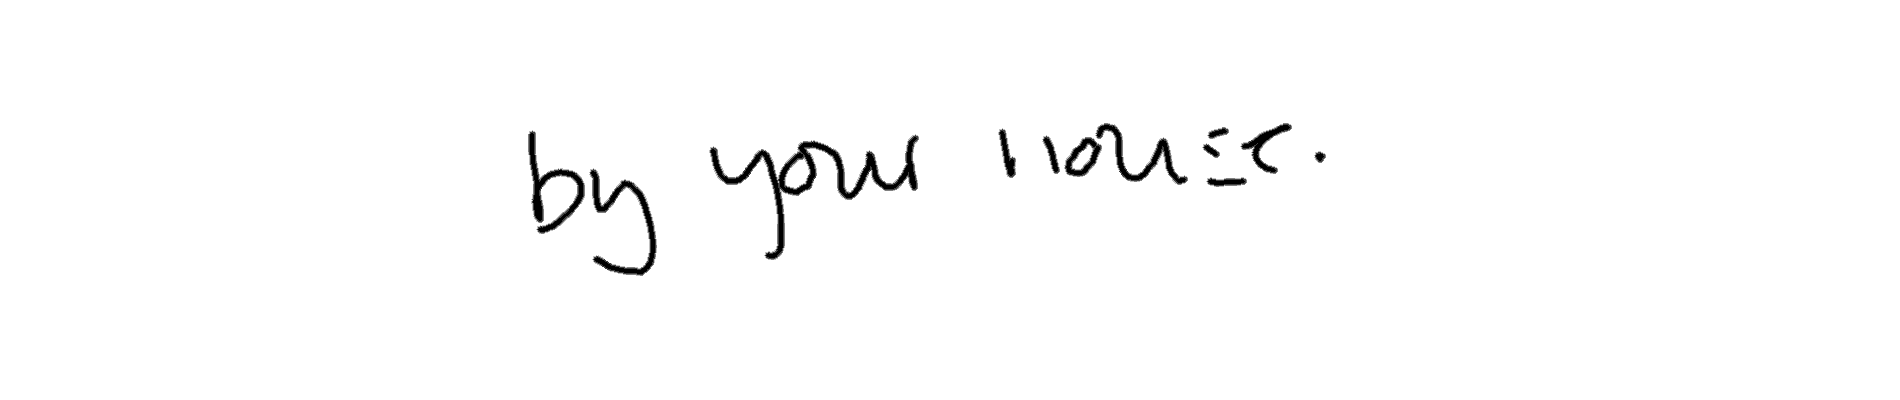 by your house.